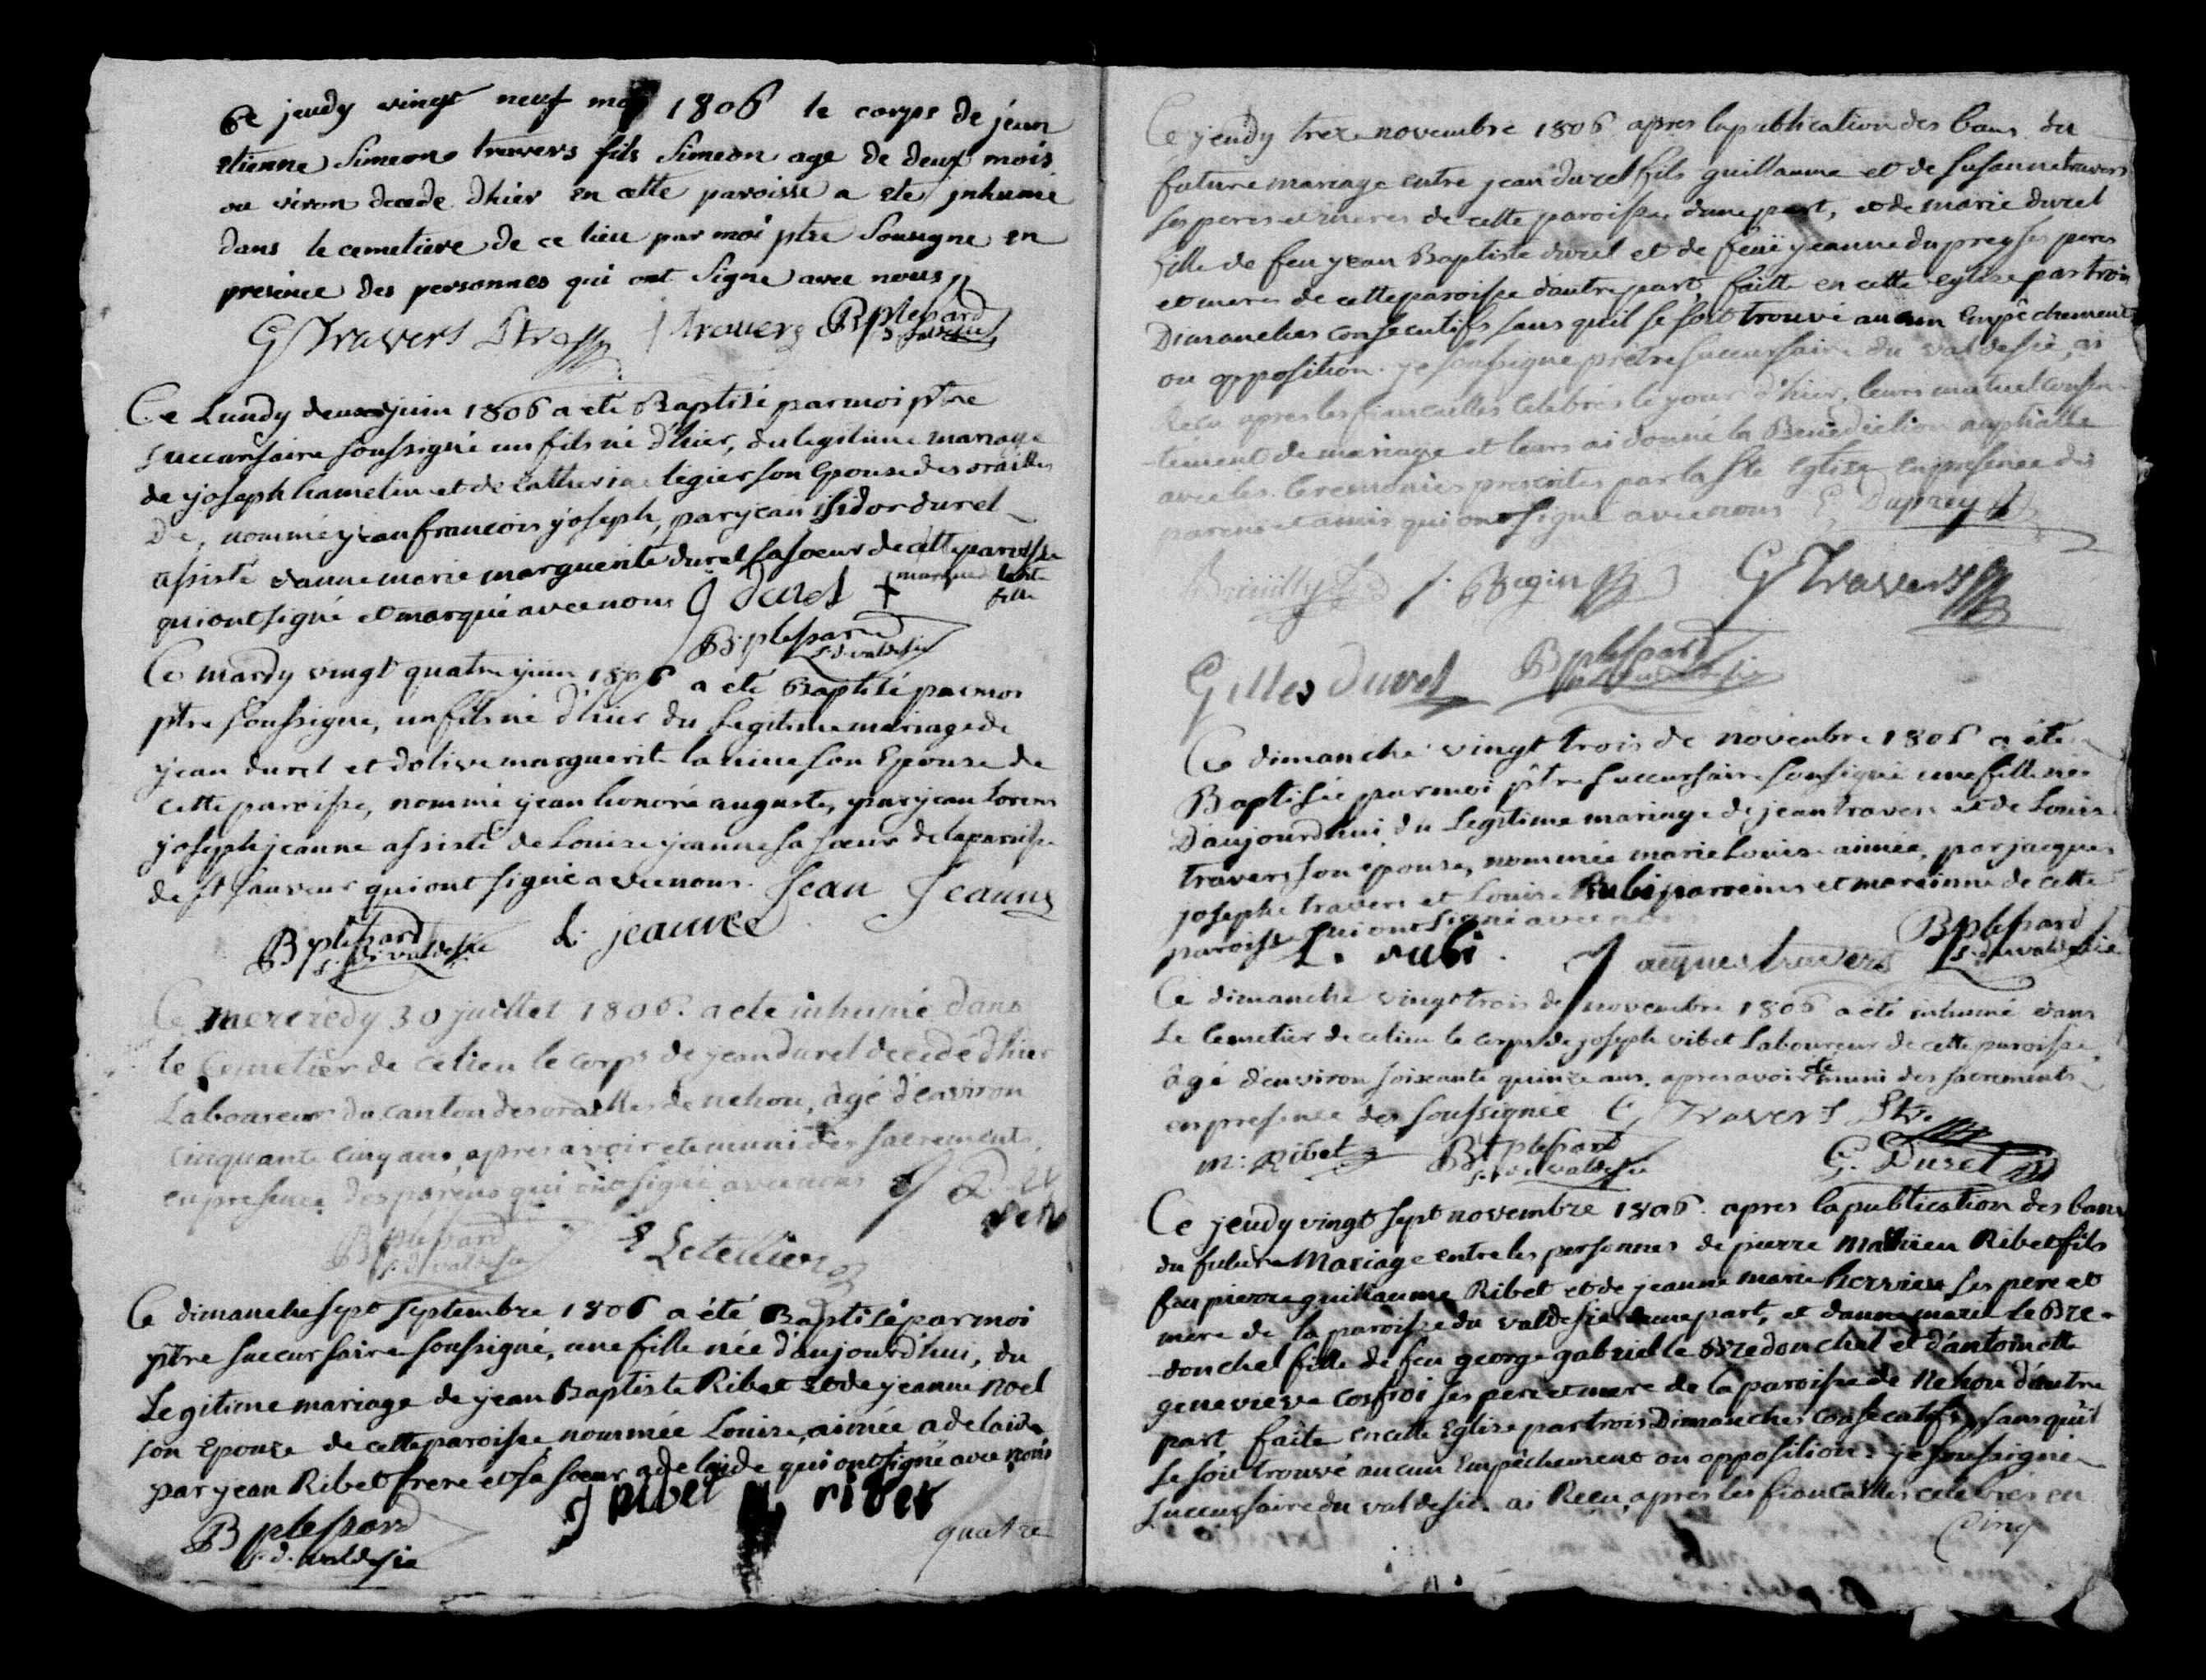 Ce jeudy vingt neuf may 1806 le corps de jean
etienne Simeon travers fils Simeon age de deux mois
ou viron decede dhier en cette paroisse a ete jnhume
dans le cemetiere de ce lieu par moi ptre Sousigne en
presence des personnes qui ont Signe avec nous
G Travers Ptre J travers B plessard
s. d. valdesie
Ce Lundy deux juin 1806 a eté Baptisé par moi ptre
succursaire soussigné un fils né d'hier, du legitime mariage
de joseph hamelin et de catherine legier son Epouse des orailles
De, nommé jean francois joseph, par jean isidor durel
assisté d'anne marie marguerite durel sa soeur de cette paroisse
qui ont signé et marqué avec nous J Durel + marque de la ste
fille
B plessard
s. d. valdesie
Ce mardy vingt quatre juin 1806 a eté Baptisé par moi
ptre soussigne, un fils né d'hier du Legitime mariage de
jean durel et d'olive marguerite son Epouse de
cette paroisse, nommé jean honoré auguste, par jean Lorens
joseph jeanne assisté de Louise jeanne sa soeur de la paroisse
de st Sauveur qui ont signé avec nous. Jean Jeanne
B plessard
s. d. valdesie L. jeanne
Ce mercredy 30 juillet 1806. a ete inhumé dans
le Cemetier de ce lieu le corps de jean durel decedé d'hier
Laboureur du canton des oraille de nehou, âgé d'environ
cinquante cinq ans, apres avoir ete muni des sacrements,
en presence des parens qui ont signé avec nous
B plessard
s. d. valdesie Letellier
Ce dimanche sept septembre 1806 a été Baptisé par moi
ptre succursaire soussigné, une fille née d'aujourd'hui, du
Legitime mariage de jean Baptiste Ribet et de jeanne Noel
son Epouse de cette paroisse nommée Louise, aimée adelaide
par jean Ribet frere et sa soeur adelaide qui ont signé avec nous
J ribet ribet
B plessard
s. d. valdesie
quatre
Ce jeudy treze novembre 1806 apres la publication des bans du
future mariage entre jean durel fils guillaume et de susanne travers
ses peres et meres de cette paroisse d'une part, et de marie durel
fille de feu jean Baptiste durel et de feuë jeanne duprey ses peres
et meres de cette paroisse d'autre part, faitte en cette eglise par trois
Dimanches consecutifs sans quil se soit trouvé aucun Empêchement
ou opposition. je soussigne prêtre succursaire du valdesie, ai
Recu apres les fiancailles celebrés le jour d'hier, leurs mutuel consen
-tement de mariage et leurs ai donné la Benediction nuptialle
avec les Ceremonies prescrites par la Ste Eglise en presence des
parens et amis qui ont signé avec nous Duprey
Begin G Travers
Gilles durel B plessard
s. d. valdesie
Ce dimanche vingt trois de novenbre 1806 a été
Baptisée par moi ptre succursaire sousigné une fille née
D'aujourdhui du Legitime mariage de jean travers et de Louise
travers son epouse, nommée marie Louise aimée, par jacques
josephe travers et Louise Rubi parreins et marainne de cette
paroisse qui ont signé avec nous B plessard
s. d. valdesie
L. rubi. Jacques travers
Ce dimanche vingt trois de novembre 1806 a été inhumé dans
Le Cemetier de ce lieu le corps de joseph vibet Laboureur de cette paroisse,
âgé d'environ soixante quinze ans. apres avoir eté muni des sacrements
en presence des soussignée G Travers Ptre
m. Ribet B plessard
s. d. valdesie G. Durel
Ce jeudy vingt sept novembre 1806. apres la publication des bans
du future Mariage entre les personnes de pierre mathieu Ribet fils
feu pierre guillaume Ribet et de jeanne marie herrieu ses pere et
mere de la paroisse du valdesie d'une part, et danne marie le Bre-
-donchel fille de feu george gabriel le Bredonchel et d'antoinette
genevieve cosfroi ses pere et mere de la paroisse de Nehou d'autre
part, faite en cette Eglise par trois Dimanches consecutifs, sans qu'il
se soit trouvé aucun Empêchement ou opposition. je soussigné
succursaire du valdesie. ai Reçu, apres les fiancailles celebrés en
Cinq